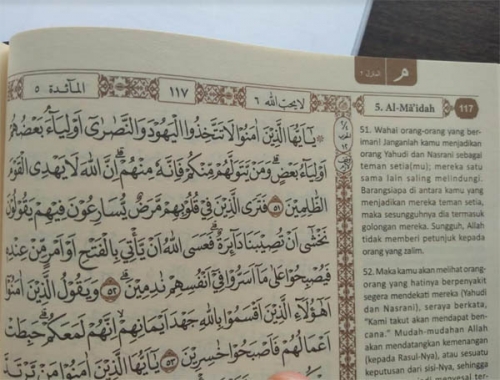 المآئدة ٥
١١٧
لا يحب الله ٦
م
5. Al-Mā'idah
117
يٰٓاَيُّهَا الَّذِيْنَ اٰمَنُوْا لَا تَتَّخِذُوا الْيَهُوْدَ وَالنَّصٰرٰٓى اَوْلِيَاۤءَ ۘ بَعْضُهُمْ
اَوْلِيَاۤءُ بَعْضٍۗ وَمَنْ يَّتَوَلَّهُمْ مِّنْكُمْ فَاِنَّهٗ مِنْهُمْ ۗ اِنَّ اللّٰهَ لَا يَهْدِى الْقَوْمَ
الظّٰلِمِيْنَ ٥١ فَتَرَى الَّذِيْنَ فِيْ قُلُوْبِهِمْ مَّرَضٌ يُّسَارِعُوْنَ فِيْهِمْ يَقُوْلُوْنَ
نَخْشٰٓى اَنْ تُصِيْبَنَا دَاۤىِٕرَةٌ ۗ فَعَسَى اللّٰهُ اَنْ يَّأْتِيَ بِالْفَتْحِ اَوْ اَمْرٍ مِّنْ عِنْدِهٖ
فَيُصْبِحُوْا عَلٰى مَآ اَسَرُّوْا فِيْٓ اَنْفُسِهِمْ نٰدِمِيْنَ ۗ ٥٢ وَيَقُوْلُ الَّذِيْنَ اٰمَنُوْٓا
اَهٰٓؤُلَاۤءِ الَّذِيْنَ اَقْسَمُوْا بِاللّٰهِ جَهْدَ اَيْمَانِهِمْۙ اِنَّهُمْ لَمَعَكُمْۗ حَبِطَتْ
اَعْمَالُهُمْ فَاَصْبَحُوْا خٰسِرِيْنَ ٥٣ يٰٓاَيُّهَا الَّذِيْنَ اٰمَنُوْا مَنْ يَّرْتَدَّ
51. Wahai orang-orang yang ber-
iman! Janganlah kamu menjadikan
orang Yahudi dan Nasrani sebagai
teman setia(mu); mereka satu
sama lain saling melindungi.
Barangsiapa di antara kamu yang
menjadikan mereka teman setia,
maka sesungguhnya dia termasuk
golongan mereka. Sungguh, Allah
tidak memberi petunjuk kepada
orang yang zalim.
52. Maka kamu akan melihat orang-
orang yang hatinya berpenyakit
segera mendekati mereka (Yahudi
dan Nasrani), seraya berkata,
"Kami takut akan mendapat ben-
cana." Mudah-mudahan Allah
akan mendatangkan kemenangan
(kepada Rasul-Nya), atau sesuatu
keputusan dari sisi-Nya, sehingga